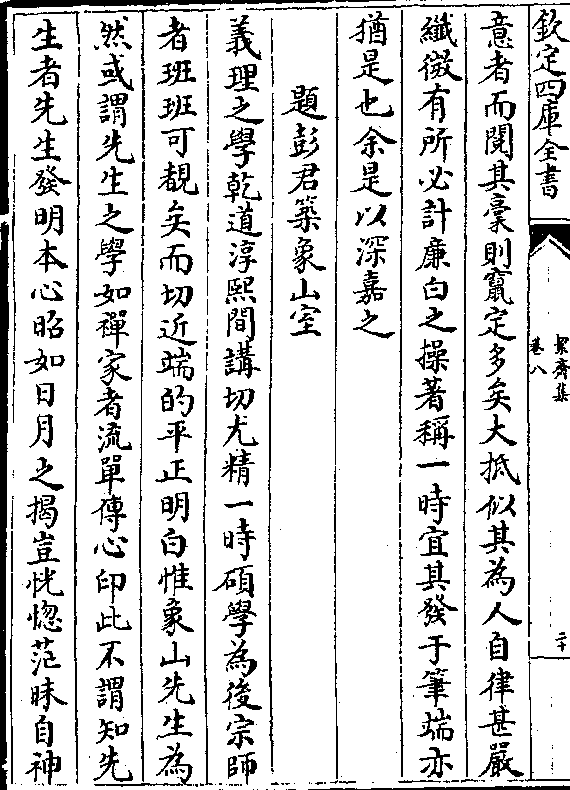 欽定四庫全書
絜齋集
卷八
二十
意者而閱其稾則竄定多矣大抵似其為人自律甚嚴
纖微有所必計亷白之操著稱一時宜其發于筆端亦
猶是也余是以深嘉之
題彭君築象山室
義理之學乾道淳熙間講切尤精一時碩學為後宗師
者班班可覩矣而切近端的平正明白惟象山先生為
然或謂先生之學如禪家者流單傳心印此不謂知先
生者先生發明本心昭如日月之揭豈恍惚茫昧自神